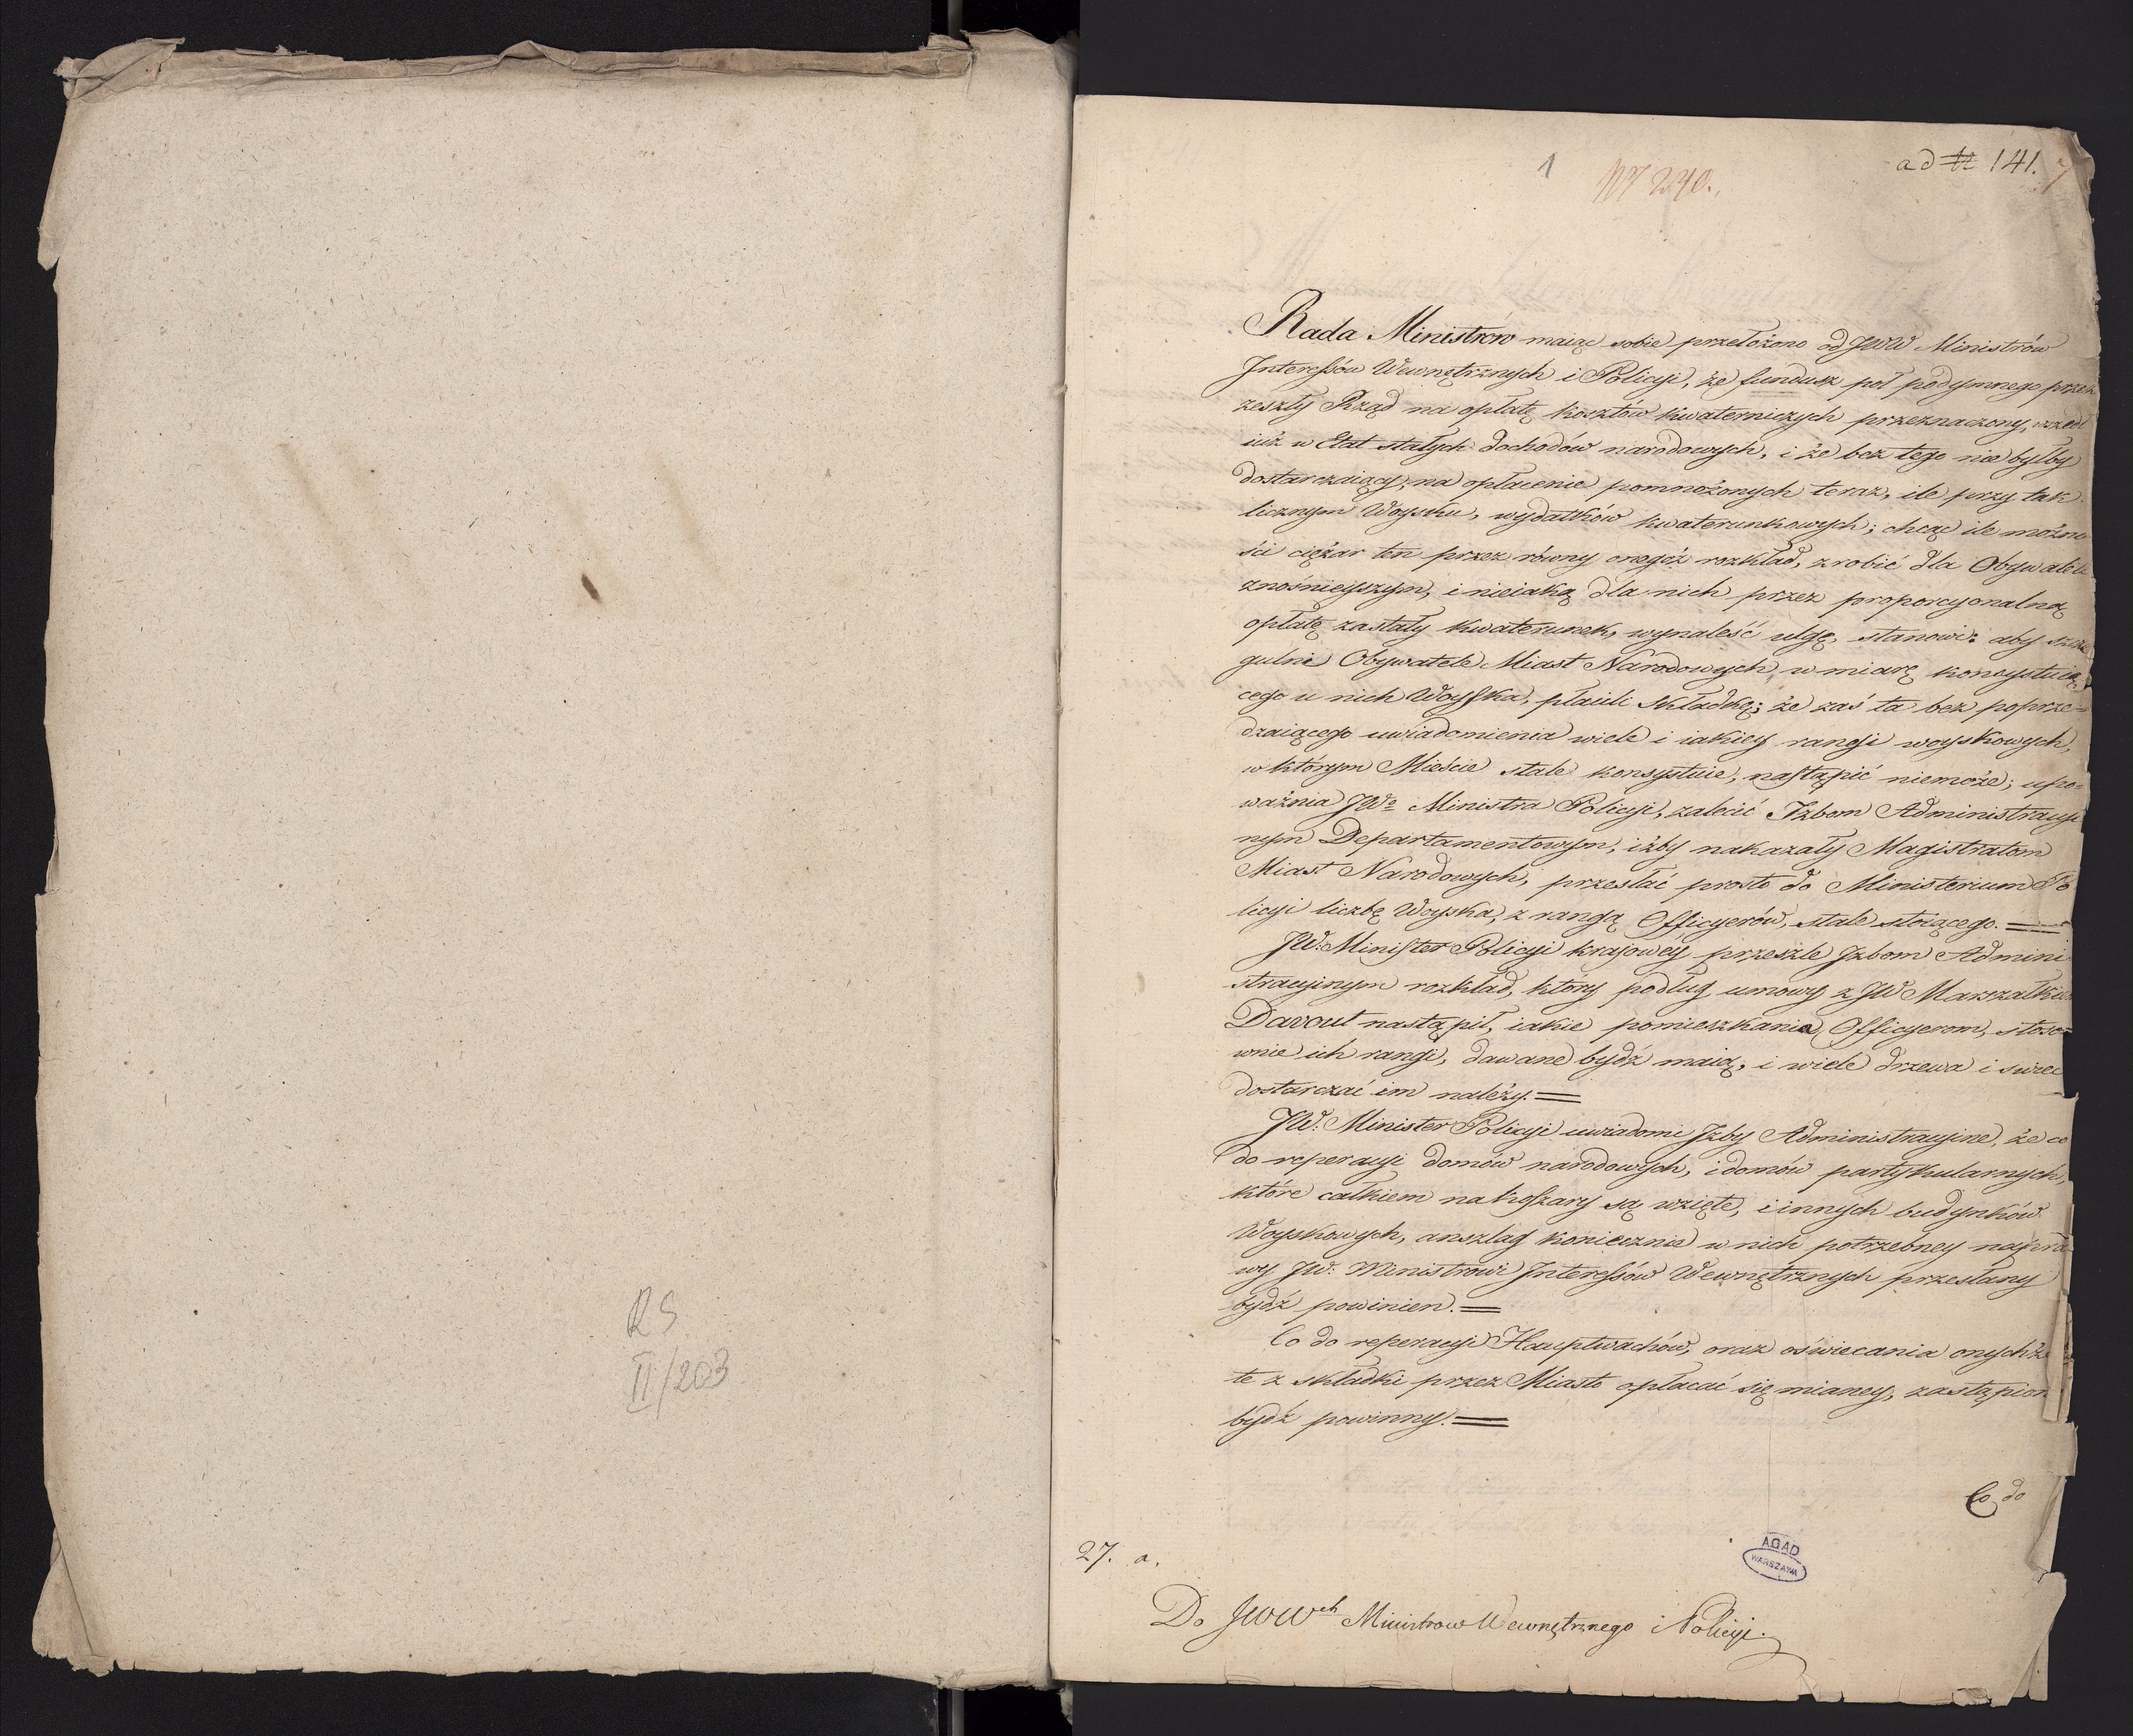 RS
II/203
1
Nr 240.
ad № 141. 7
Rada Ministrów maiąc sobie przełożono od JWW Ministrów
Interessów Wewnętrznych i Policyi, że fundusz pół podymnego przez
zeszły Rząd na opłatę kosztów kwaterniczych przeznaczony, wszedł
iuż w Etat stałych dochodów narodowych, i że bez tego nie byłby
dostarczaiący, na opłacenie pomnożonych teraz, ile przy tak
licznym Woysku, wydatków kwaterunkowych; chcąc ile możno
ści ciężar ten przez równy onegóż rozkład, zrobić dla Obywateli
znośnieyszym, i nieiaką dla nich przez proporcyonalną
opłatę za stały kwaterunek, wynaleść ulgę, stanowi: aby szcze
gulnie Obywatele Miast Narodowych, w miarę konsystuią
cego u nich Woyska, płacili składkę; że zaś ta bez poprze=
dzaiącego uwiadomienia wiele i iakiey rangi woyskowych,
w którym Mieście stale konsystuie, nastąpić niemoże; upo=
ważnia JWo Ministra Policyi, zalecić Izbom Administracyi
nym Departamentowym, iżby nakazały Magistratom
Miast Narodowych, przesłać prosto do Ministerium Po
licyi liczbę Woyska, z rangą Officyerów, stale stoiącego. =
JW: Minister Policyi krajowéy przeszle Jzbom Admini
stracyinym rozkład, który podług umowy z JW Marszałkiem
Davout nastąpił, iakie pomieszkania Officyerom, stoso=
wnie ich rangi, dawane bydź maią, i wiele drzewa i swiec
dostarczać im należy. =
JW: Minister Policyi uwiadomi Jzby Administracyine, że co
do reperacyi domów narodowych, i domów partykularnych,
które całkiem na koszary są wzięte, i innych budynków
Woyskowych, anszlag koniecznie w nich potrzebney napra
wy JW: Ministrowi Interessów Wewnętrznych przesłany
bydź powinien. =
Co do reperacyi Hauptwachów, oraz oświecania onychże
te z składki przez Miasto opłacać się mianey, zastąpion
bydź powinny. =
Co do
27. a.
AGAD
WARSZAWA
Do JWWch Ministrow Wewnętrznego i Policyi.